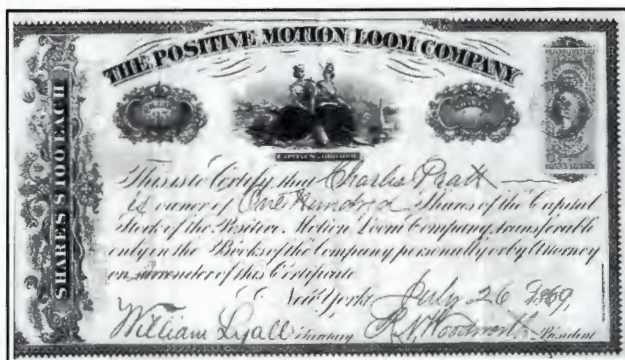 THE POSITIVE MOTION LOOM COMPANY
SHARES $100 EACH
This is to Certify that Charles Pratt
is owner of One Hundred Shares of the Capital
Stock of the Positive Motion Loom Company, transferable
only in the Books of the Company personally or by Attorney
on surrender of this Certificate
New York, July 26 1869,
William Lyall President